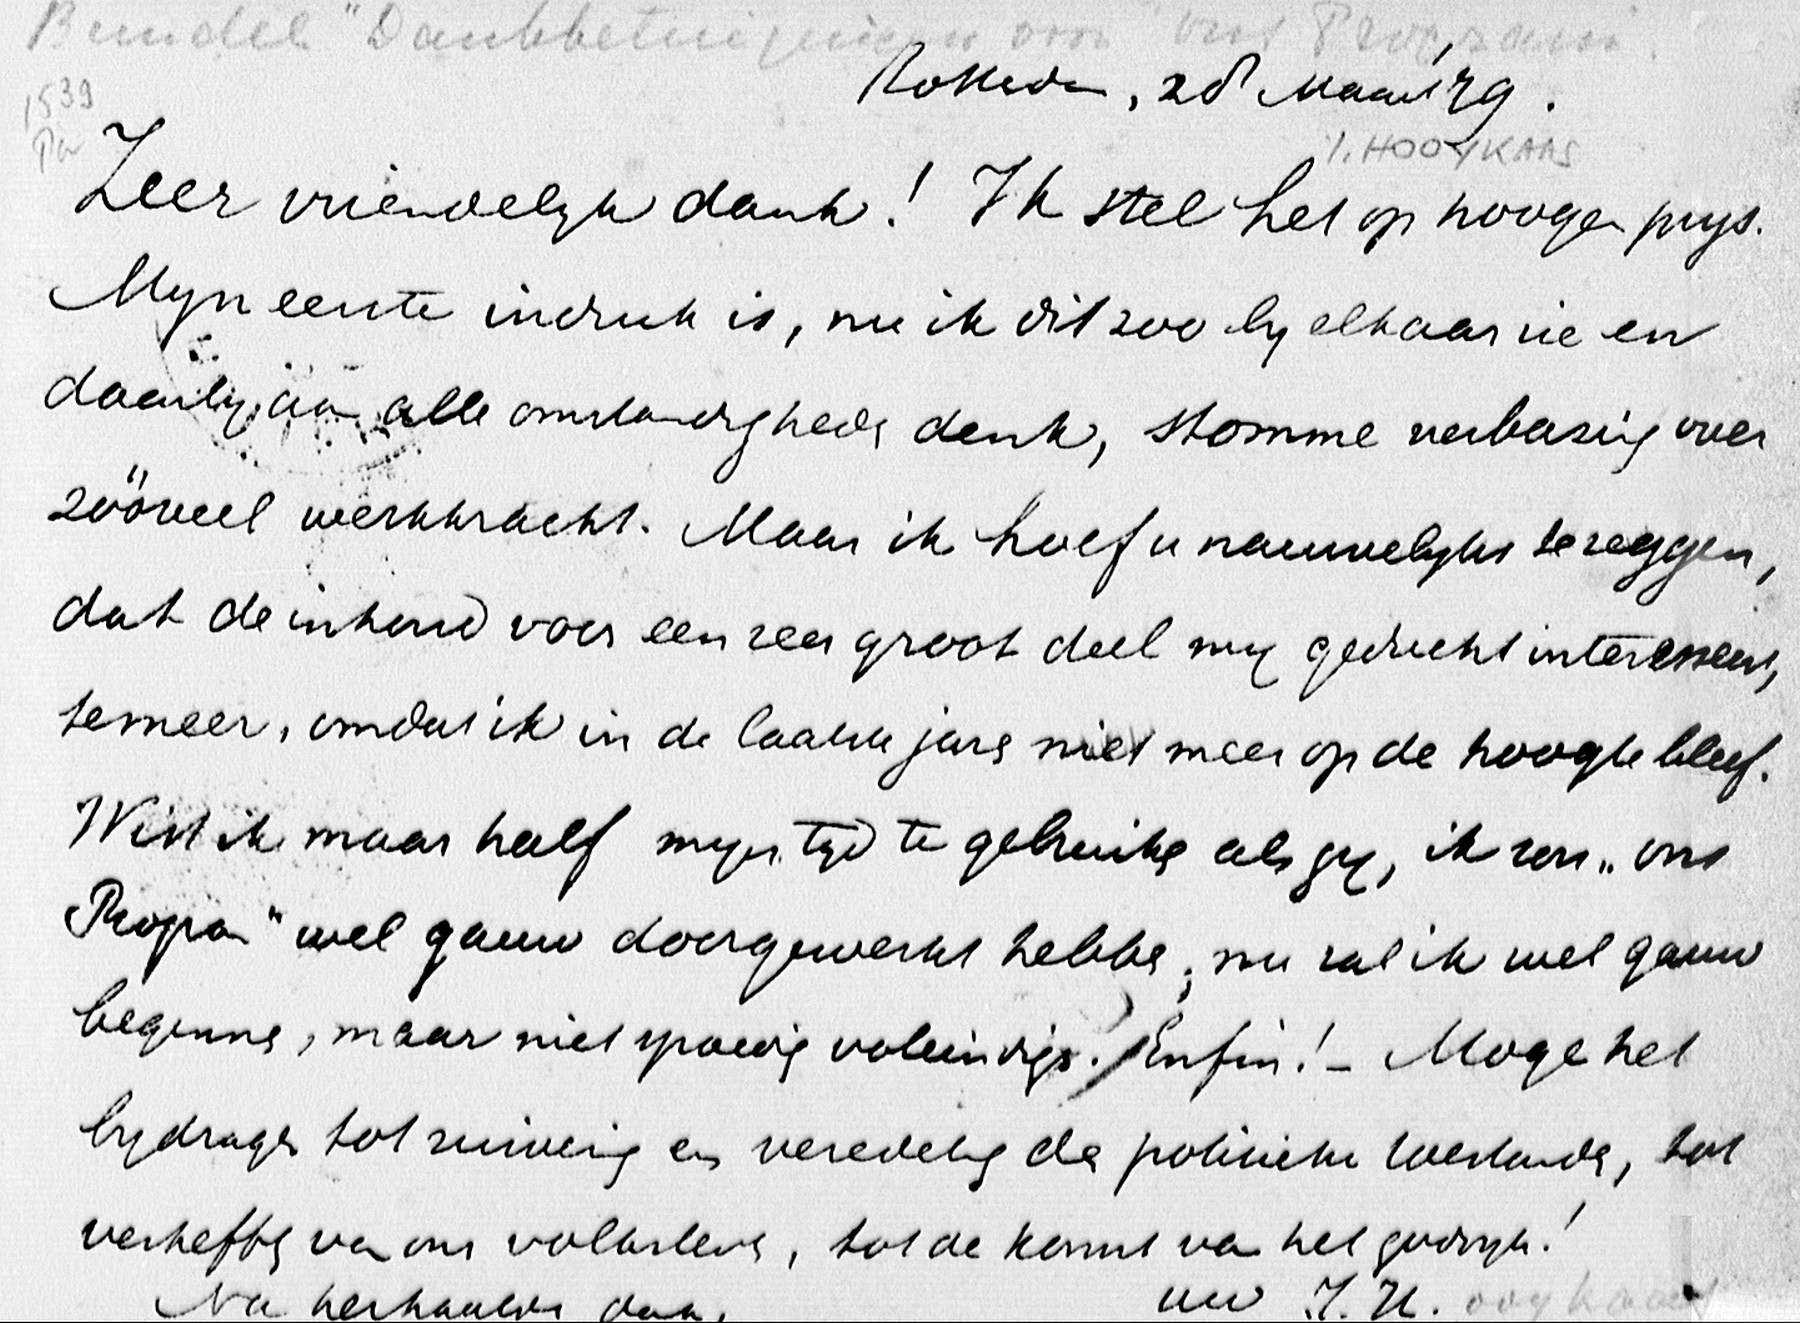 Bundel "Dankbetuigingen om "ons Program".
Rotterdam, 28 Maart '79.
1539
Pa
I. HOOYKAAS
Zeer vriendelyk dank! Ik stel het op hoogen prys.
Myn eerste indruk is, nu ik dit zoo by elkaar zie en
daarby aan alle omstandigheden denk, stomme verbazing over
zóóveel werkkracht. Maar ik hoef u nauwelyks te zeggen,
dat de inhoud voor een zeer groot deel my geducht interesseert,
temeer, omdat ik in de laatste jaren niet meer op de hoogte bleef.
Wist ik maar half myn tyd te gebruiken als gy, ik zou „ons
Program" wel gauw doorgewerkt hebben; nu zal ik wel gauw
beginnen, maar niet spoedig voleindigen. Enfin! – Moge het
bydragen tot zuivering en veredeling der politieke toestanden, tot
verheffing van ons volksleven, tot de komst van het godsryk!
Na herhaalden dank,
uw I. H. ooykaas